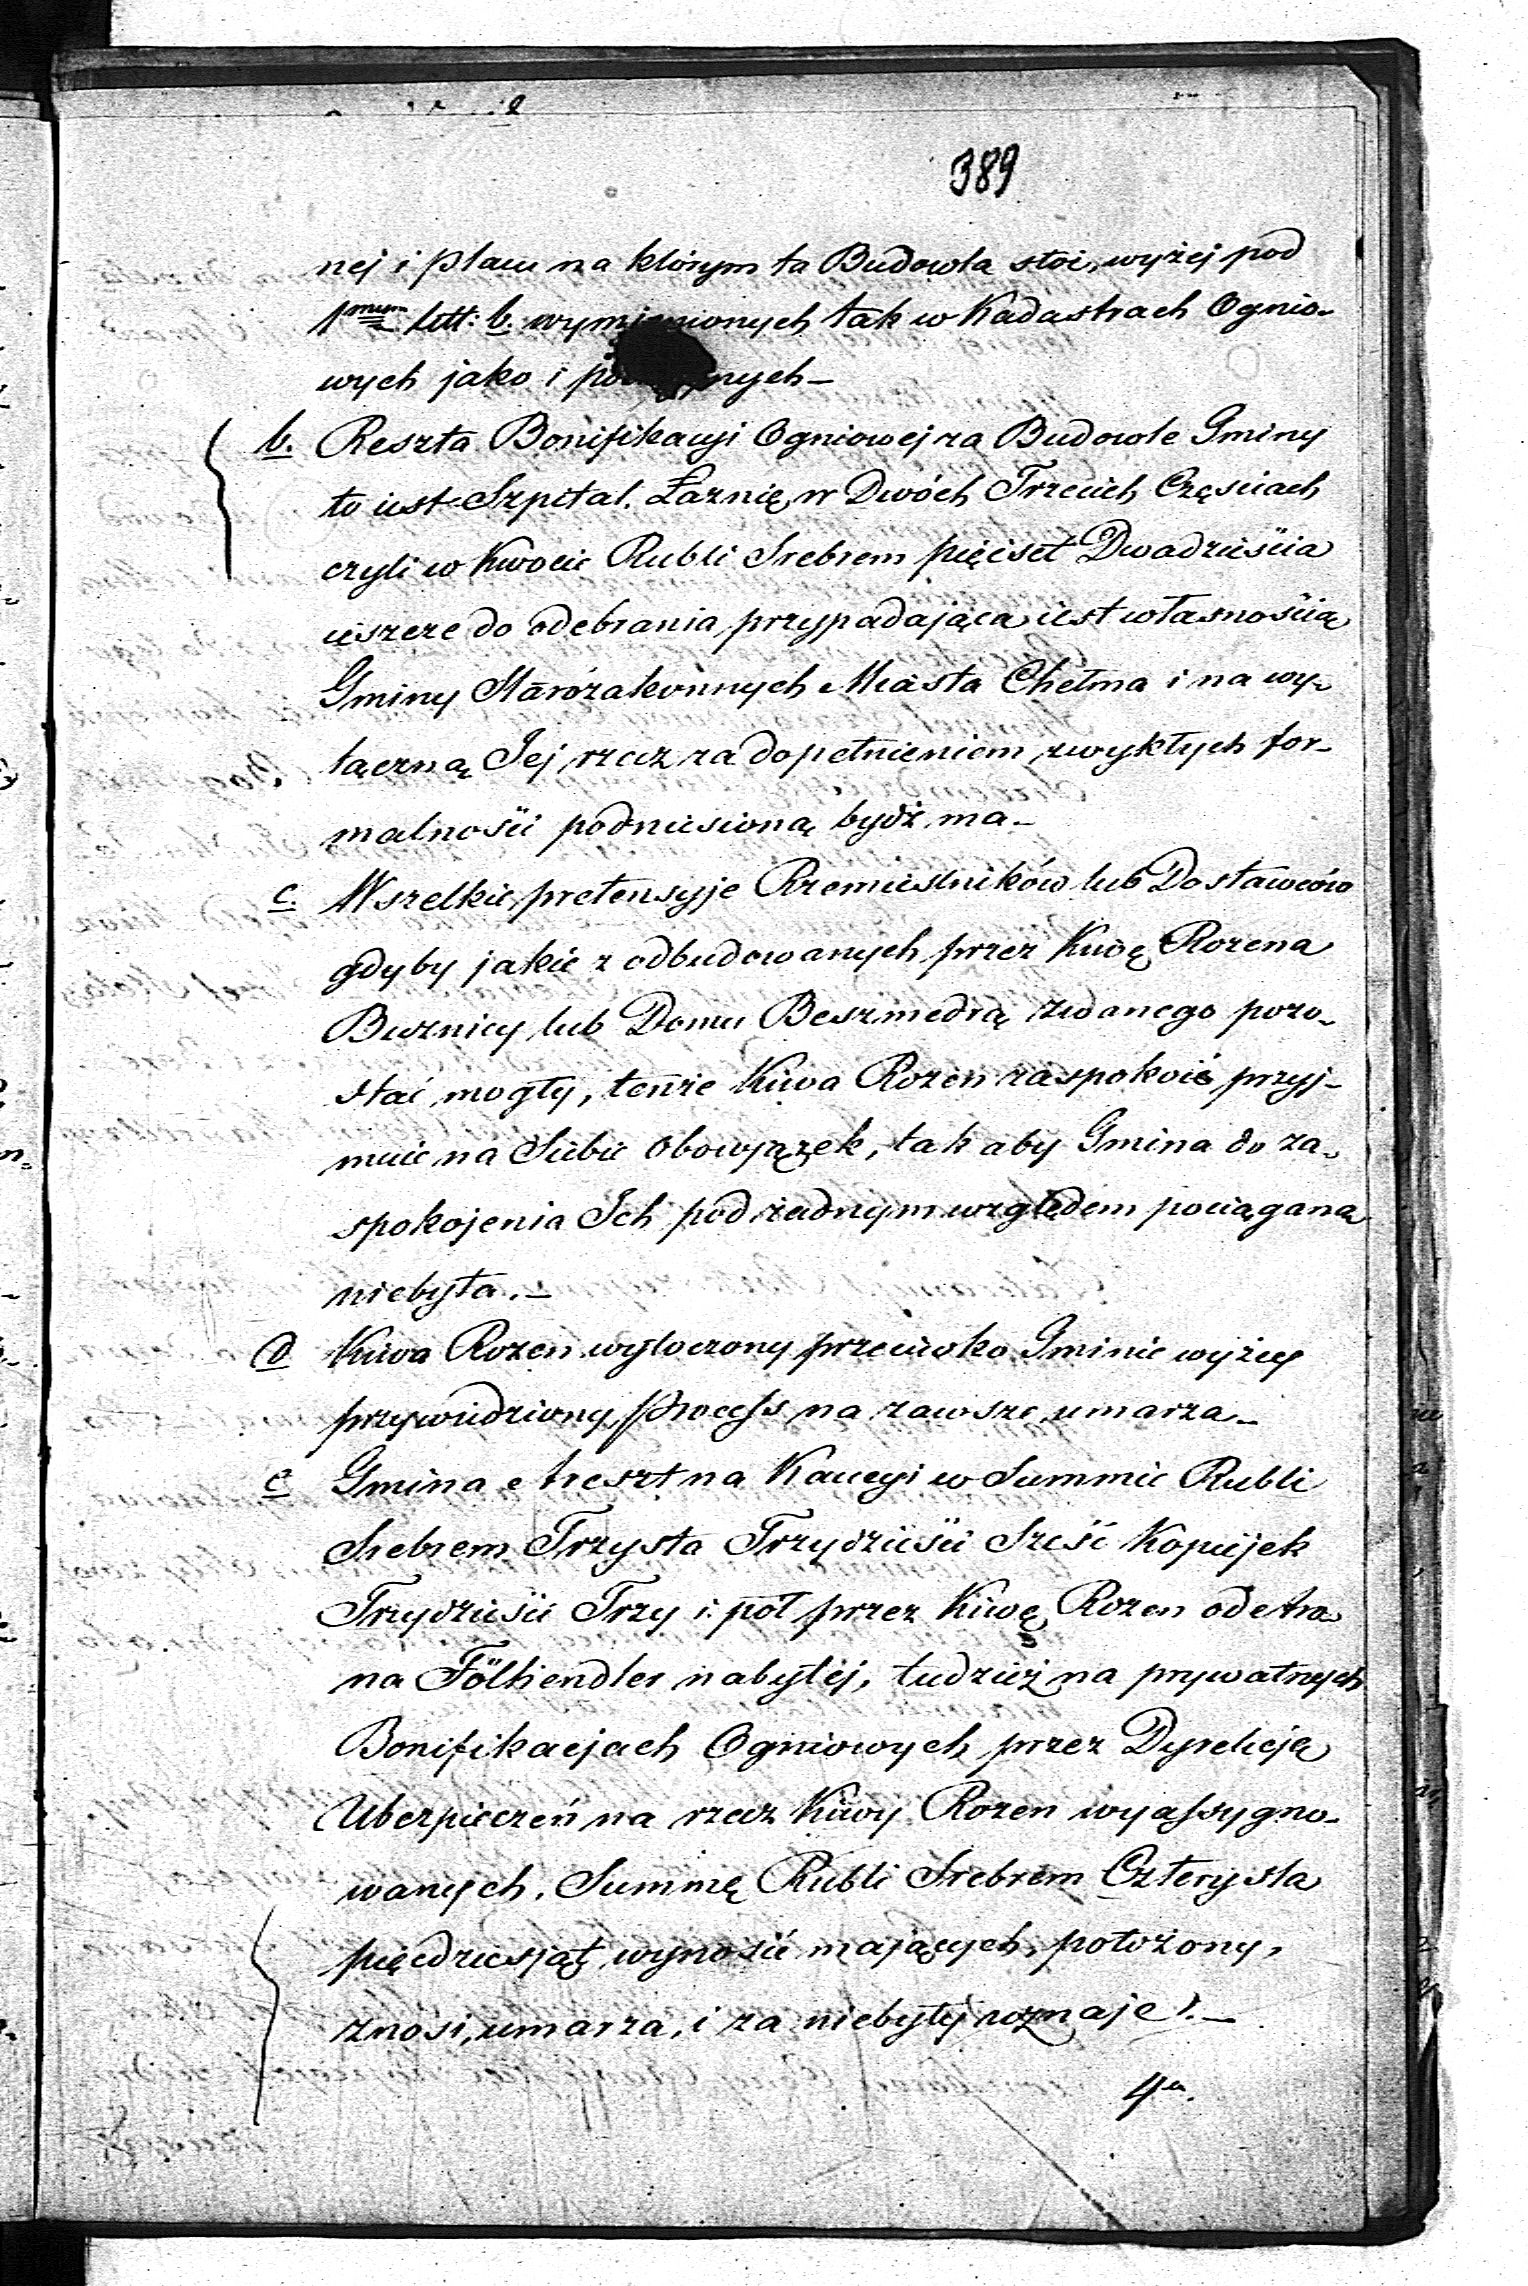 389
nej i placu na którym ta Budowla stoi, wyżej pod
1mym litt: b. wymienionych tak w Kadastrach Ognio-
wych jako i nych –
b. Reszta Bonifikacyi Ogniowej za Budowle Gminy
to iest Szpital. Łaznię, w Dwóch Trzecich Częsciach
czyli w Kwocie Rubli Srebrem pięcset Dwadzieścia
ieszcze do odebrania przypadająca iest własnością
Gminy Starozakonnych Miasta Chełma i na wy-
łączną Jej rzecz za dopełnieniem zwykłych for-
malności podniesioną bydź ma –
c. Wszelkie pretensyje Rzemieslników lub Dostawców
gdyby jakie z odbudowanych przez Kiwę Rozena
Buznicy lub Domu Beszmedrą zwanego pozo-
stać mogły, tenże Kiwa Rozen zaspokoić przyj-
muie na Siebie obowjązek, tak aby Gmina do za-
spokojenia Ich pod żadnym względem pociąganą
niebyła. –
d Kiwa Rozen wytoczony przeciwko Gminie wyżey
przywiedziony Process na zawsze umarza –
e Gmina Areszt na Kaucyi w Summie Rubli
Srebrem Trzysta Trzydzieści Sześć Kopiejek
Trzydzieści Trzy i pół przez Kiwę Rozen od Aro-
na Fölhendler nabytéj, tudzież na prywatnych
Bonifikacjach Ogniowych przez Dyrekcją
Ubezpieczeń na rzecz Kiwy Rozen wyassygno-
wanych, Summę Rubli Srebrem Czterysta
pięćdziesjąt wynosić mających, położony,
znosi, umarza, i za niebyły uznaje. –
4a.